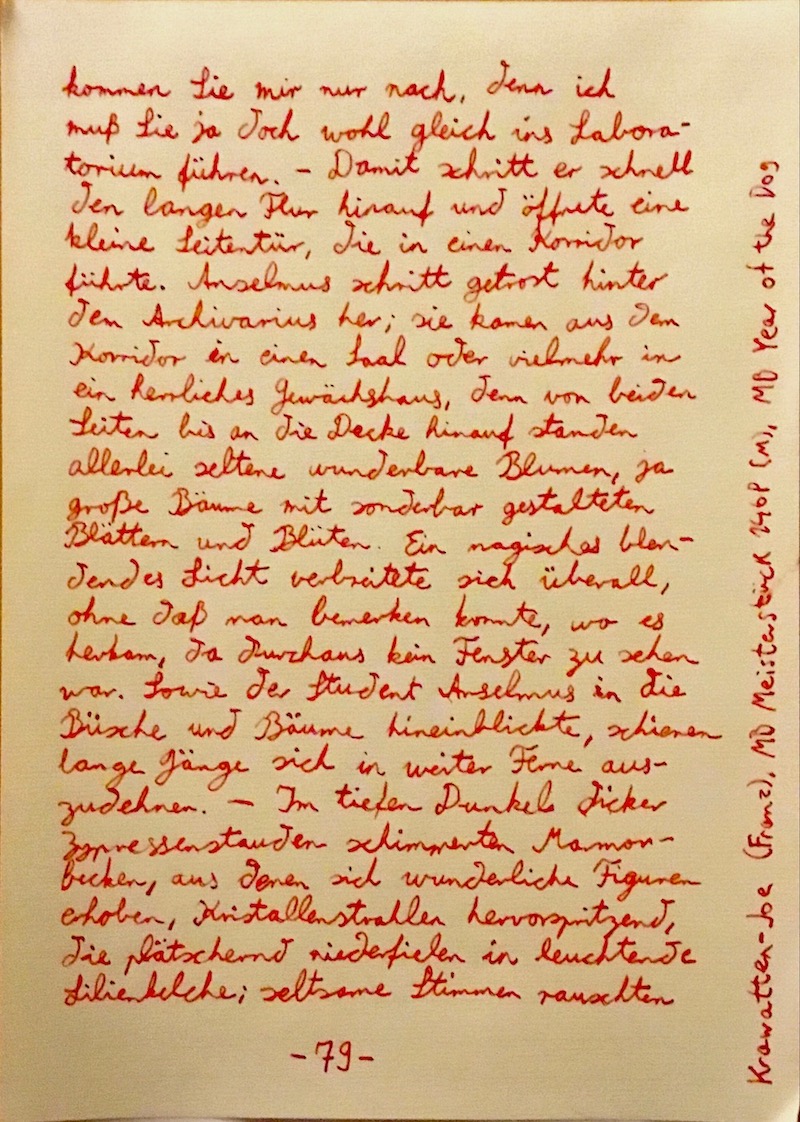 kommen Sie mir nur nach, denn ich
muß Sie ja doch wohl gleich ins Labora-
torium führen. – Damit schritt er schnell
den langen Flur hinauf und öffnete eine
kleine Seitentür, die in einen Korridor
führte. Anselmus schritt getrost hinter
dem Archivarius her; sie kamen aus dem
Korridor in einen Saal oder vielmehr in
ein herrliches Gewächshaus, denn von beiden
Seiten bis an die Decke hinauf standen
allerlei seltene wunderbare Blumen, ja
große Bäume mit sonderbar gestalteten
Blättern und Blüten. Ein magisches blen-
dendes Licht verbreitete sich überall,
ohne daß man bemerken konnte, wo es
herkam, da durchaus kein Fenster zu sehen
war. Sowie der Student Anselmus in die
Büsche und Bäume hineinblickte, schienen
lange Gänge sich in weiter Ferne aus-
zudehnen. – Im tiefen Dunkel dicker
Zypressenstauden schimmerten Marmor-
becken, aus denen sich wunderliche Figuren
erhoben, Kristallenstrahlen hervorspritzend,
die plätschernd niederfielen in leuchtende
Lilienkelche; seltsame Stimmen rauschten
-79-
Krawatten-Joe (Franz), MB Meisterstück 240P (M), MB Year of the Dog